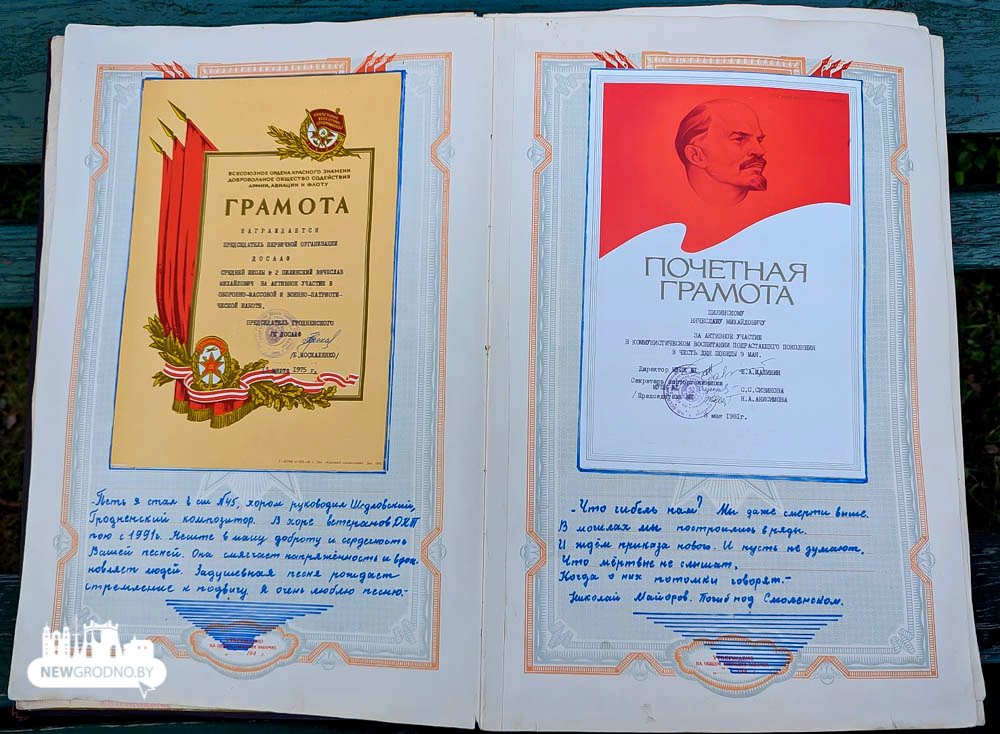 ВСЕСОЮЗНОЕ ОРДЕНА КРАСНОГО ЗНАМЕНИ
ДОБРОВОЛЬНОЕ ОБЩЕСТВО СОДЕЙСТВИЯ
АРМИИ, АВИАЦИИ И ФЛОТУ
ГРАМОТА
НАГРАЖДАЕТСЯ
ПРЕДСЕДАТЕЛЬ ПЕРВИЧНОЙ ОРГАНИЗАЦИИ
ДОСААФ
СРЕДНЕЙ ШКОЛЫ № 2 ПИЛИНСКИЙ ВЯЧЕСЛАВ
МИХАЙЛОВИЧ ЗА АКТИВНОЕ УЧАСТИЕ В
ОБОРОННО-МАССОВОЙ И ВОЕННО-ПАТРИОТИ-
ЧЕСКОЙ РАБОТЕ.
ПРЕДСЕДАТЕЛЬ ГРОДНЕНСКОГО
ГК ДОСААФ
/Б.МОСКАЛЕНКО/
МАРТА 1975 г.
Петь я стал в сш №45, хором руководил Шедловский,
Гродненский композитор. В хоре ветеранов ДХТ
пою с 1991г. Несите в нашу доброту и сердечность
Вашей песней. Она смягчает напряжённость и вдох
новляет людей. Задушевная песня рождает
стремление к подвигу. Я очень люблю песню.-
NEWGRODNO.BY
ПОЧЕТНАЯ
ГРАМОТА
ПИЛИНСКОМУ
ВЯЧЕСЛАВУ МИХАЙЛОВИЧУ
ЗА АКТИВНОЕ УЧАСТИЕ
В КОММУНИСТИЧЕСКОМ ВОСПИТАНИИ ПОДРАСТАЮЩЕГО ПОКОЛЕНИЯ
В ЧЕСТЬ ДНЯ ПОБЕДЫ 9 МАЯ.
Директор Е.А.КАЛИНИН
Секретарь парторганизации
С.С.СИЗИКОВА
/Председатель Н.А.АНИСИМОВА
8 мая 1981г.
- Что гибель нам? Мы даже смерти выше.
В могилах мы построились в ряды.
И ждём приказа нового. И пусть не думают,
Что мёртвые не слышат,
Когда о них потомки говорят.-
Николай Майоров. Погиб под Смоленском.